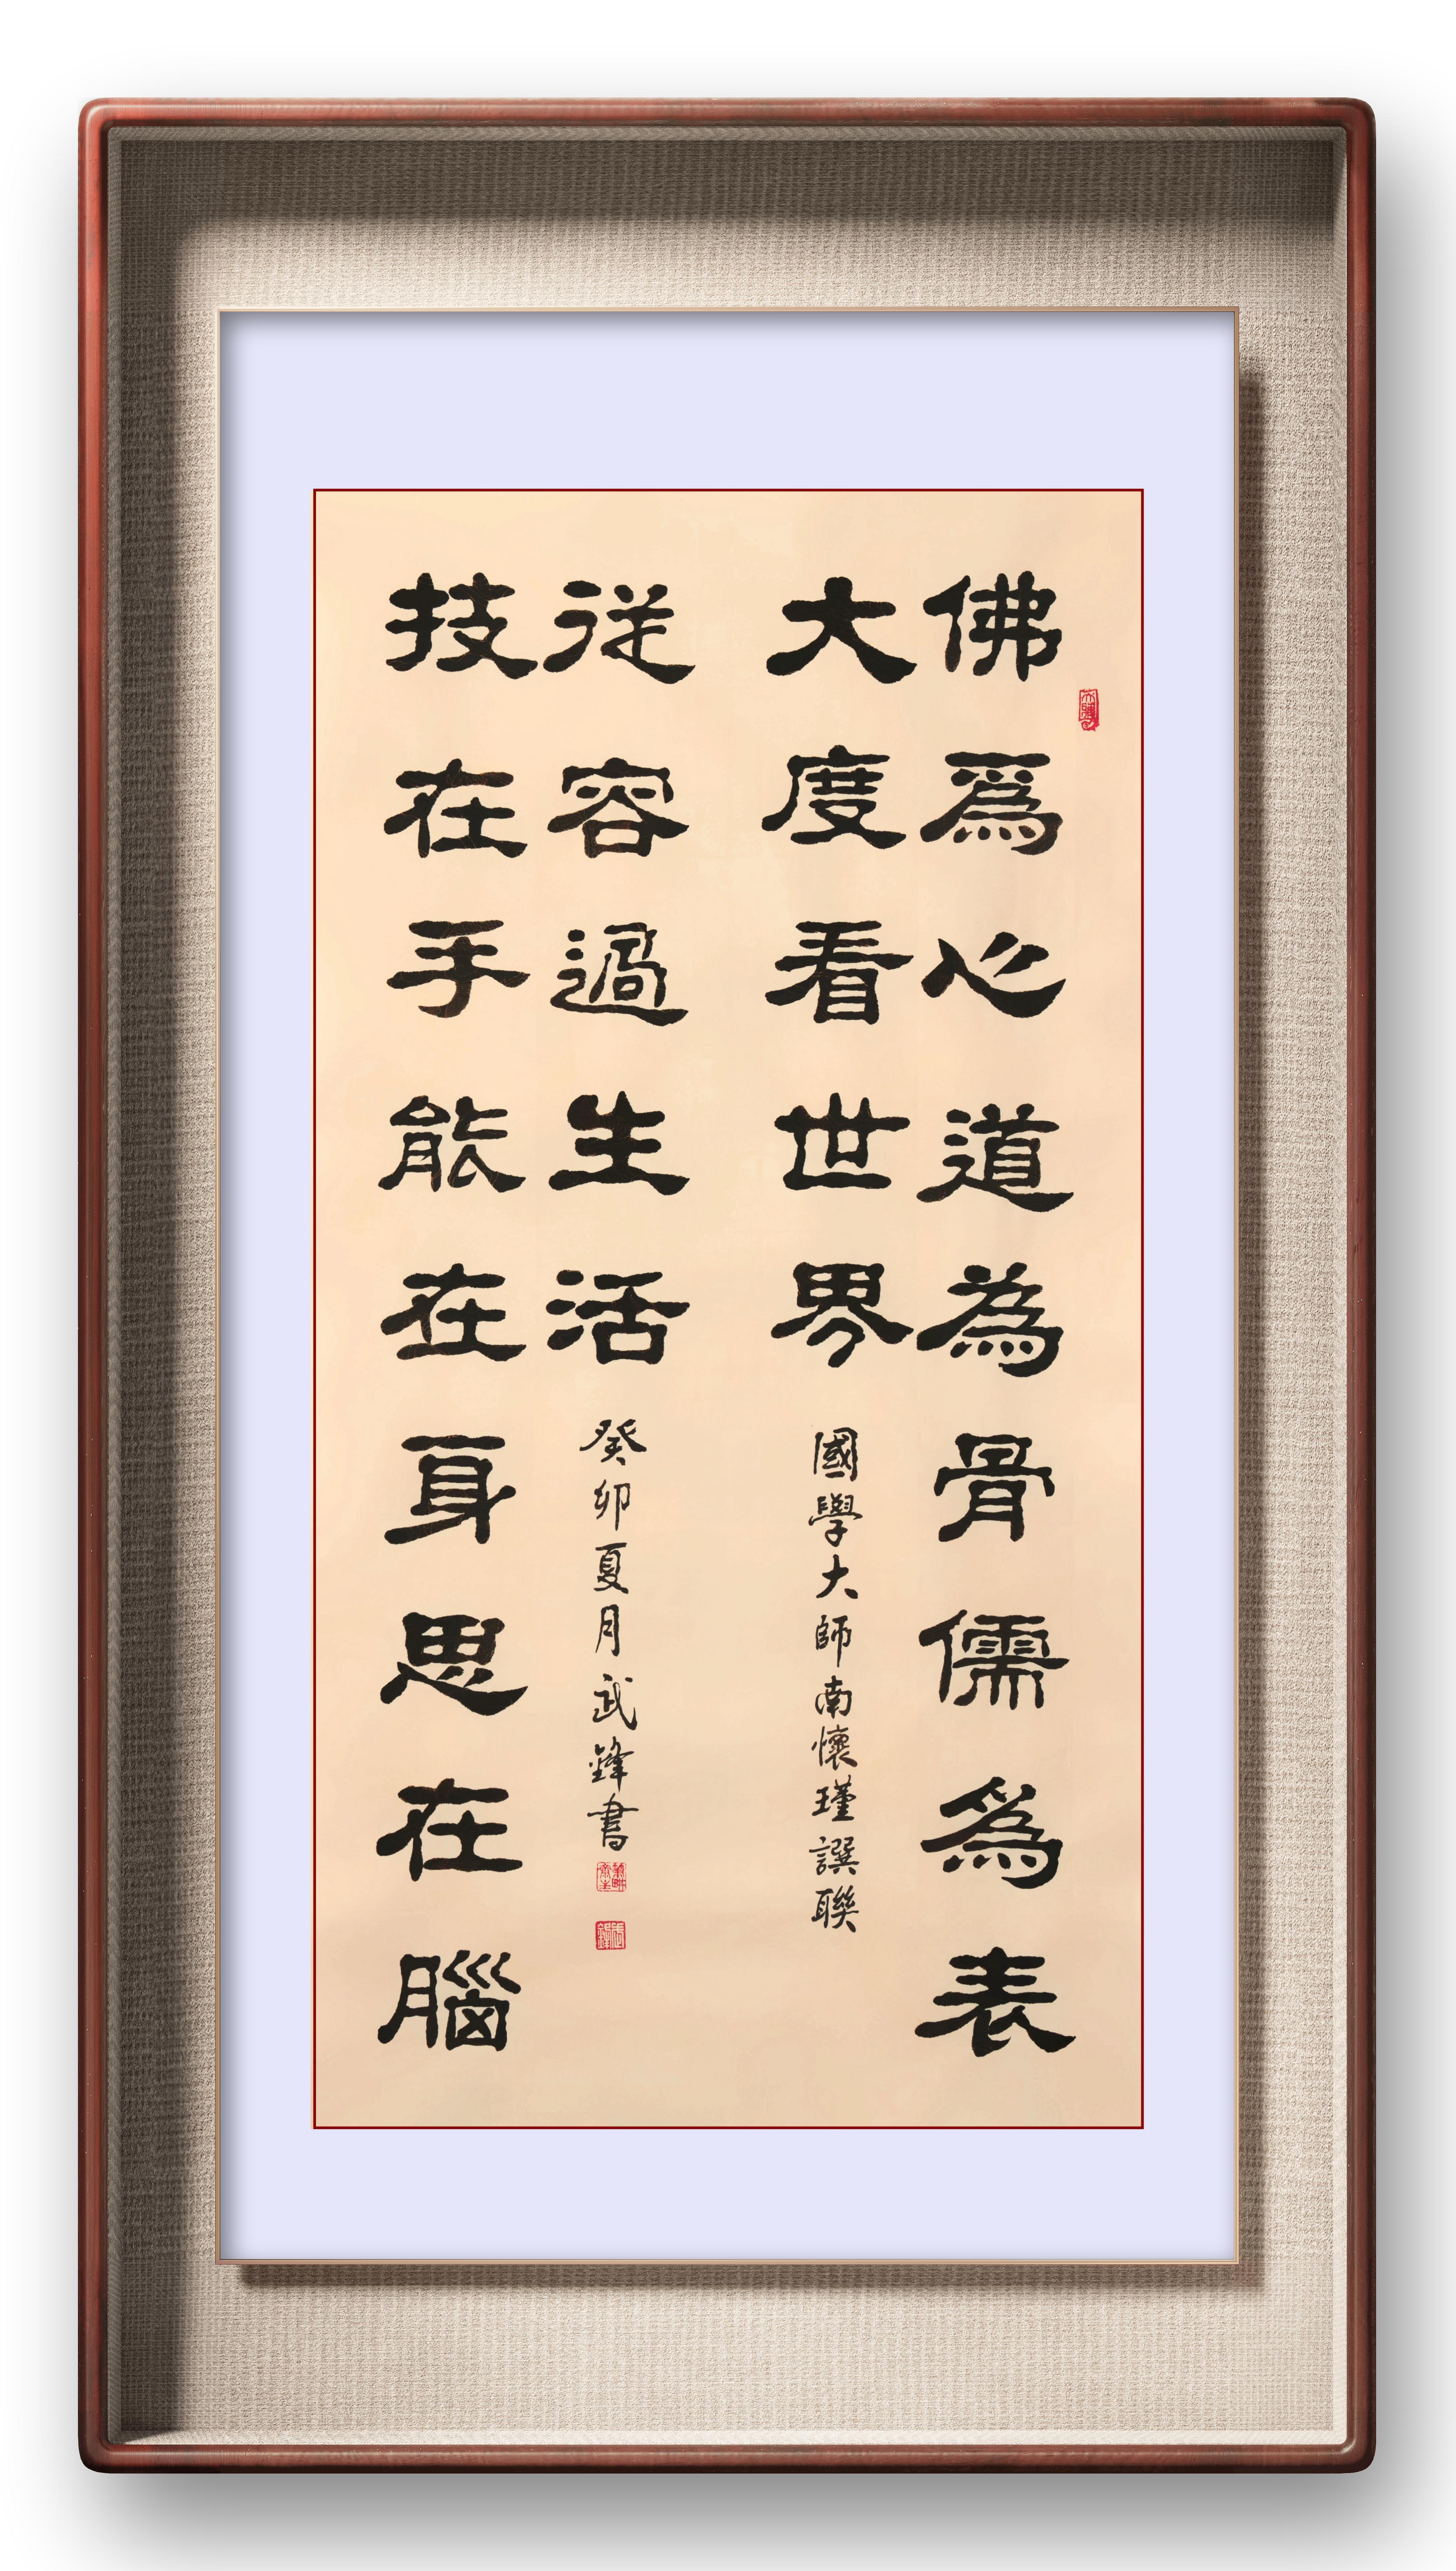 佛爲心道為骨儒爲表
大度看世界
國學大師南懷瑾譔聯
技在手能在身思在腦
従容過生活
癸卯夏月武鋒書